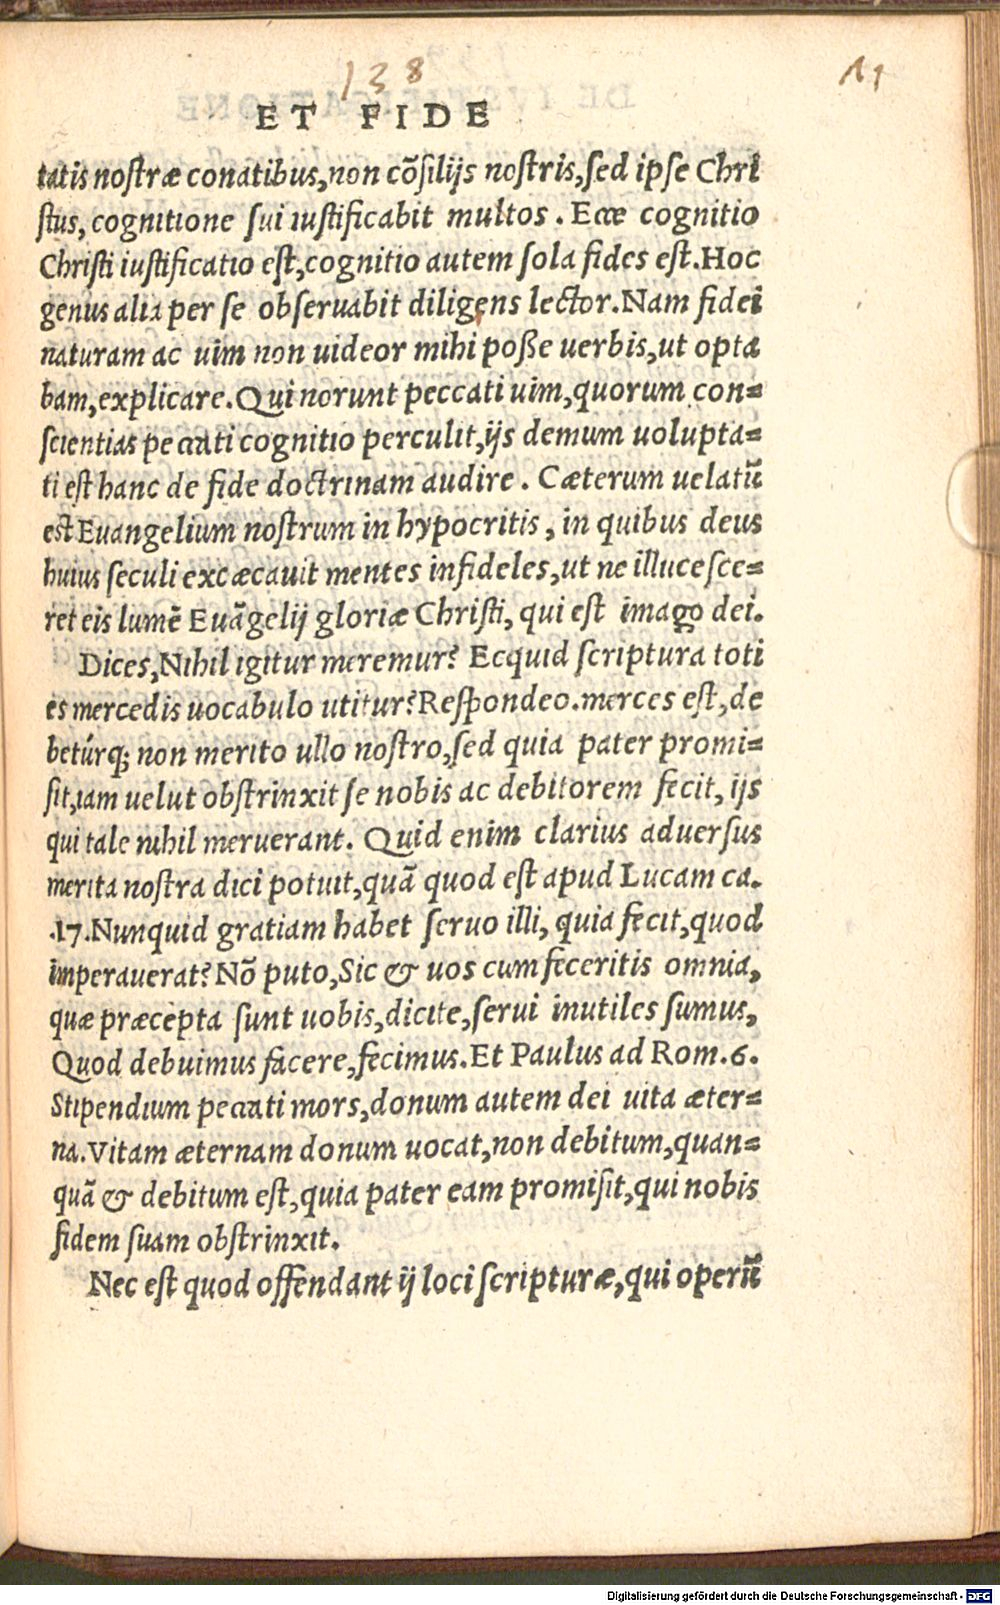 138
11
ET FIDE
tatis nostræ conatibus, non cõsilijs nostris, sed ipse Chri
stus, cognitione sui iustificabit multos. Ecce cognitio
Christi iustificatio est, cognitio autem sola fides est. Hoc
genus alia per se obseruabit diligens lector. Nam fidei
naturam ac uim non uideor mihi posse uerbis, ut opta
bam, explicare. Qui norunt peccati uim, quorum con=
scientias peccati cognitio perculit, ijs demum uolupta=
ti est hanc de fide doctrinam audire. Cæterum uelatũ
est Euangelium nostrum in hypocritis, in quibus deus
huius seculi excæcauit mentes infideles, ut ne illucesce=
ret eis lumẽ Euãgelij gloriæ Christi, qui est imago dei.
Dices, Nihil igitur meremur? Ecquid scriptura toti
es mercedis uocabulo utitur? Respondeo. merces est, de
betúrq; non merito ullo nostro, sed quia pater promi=
sit, iam uelut obstrinxit se nobis ac debitorem fecit, ijs
qui tale nihil meruerant. Quid enim clarius aduersus
merita nostra dici potuit, quã quod est apud Lucam ca.
.17. Nunquid gratiam habet seruo illi, quia fecit, quod
imperauerat? Nõ puto, Sic & uos cum feceritis omnia,
quæ præcepta sunt uobis, dicite, serui inutiles sumus,
Quod debuimus facere, fecimus. Et Paulus ad Rom. 6.
Stipendium peccati mors, donum autem dei uita æter=
na. Vitam æternam donum uocat, non debitum, quan=
quã & debitum est, quia pater eam promisit, qui nobis
fidem suam obstrinxit.
Nec est quod offendant ij loci scripturæ, qui operũ
Digitalisierung gefördert durch die Deutsche Forschungsgemeinschaft - DFG